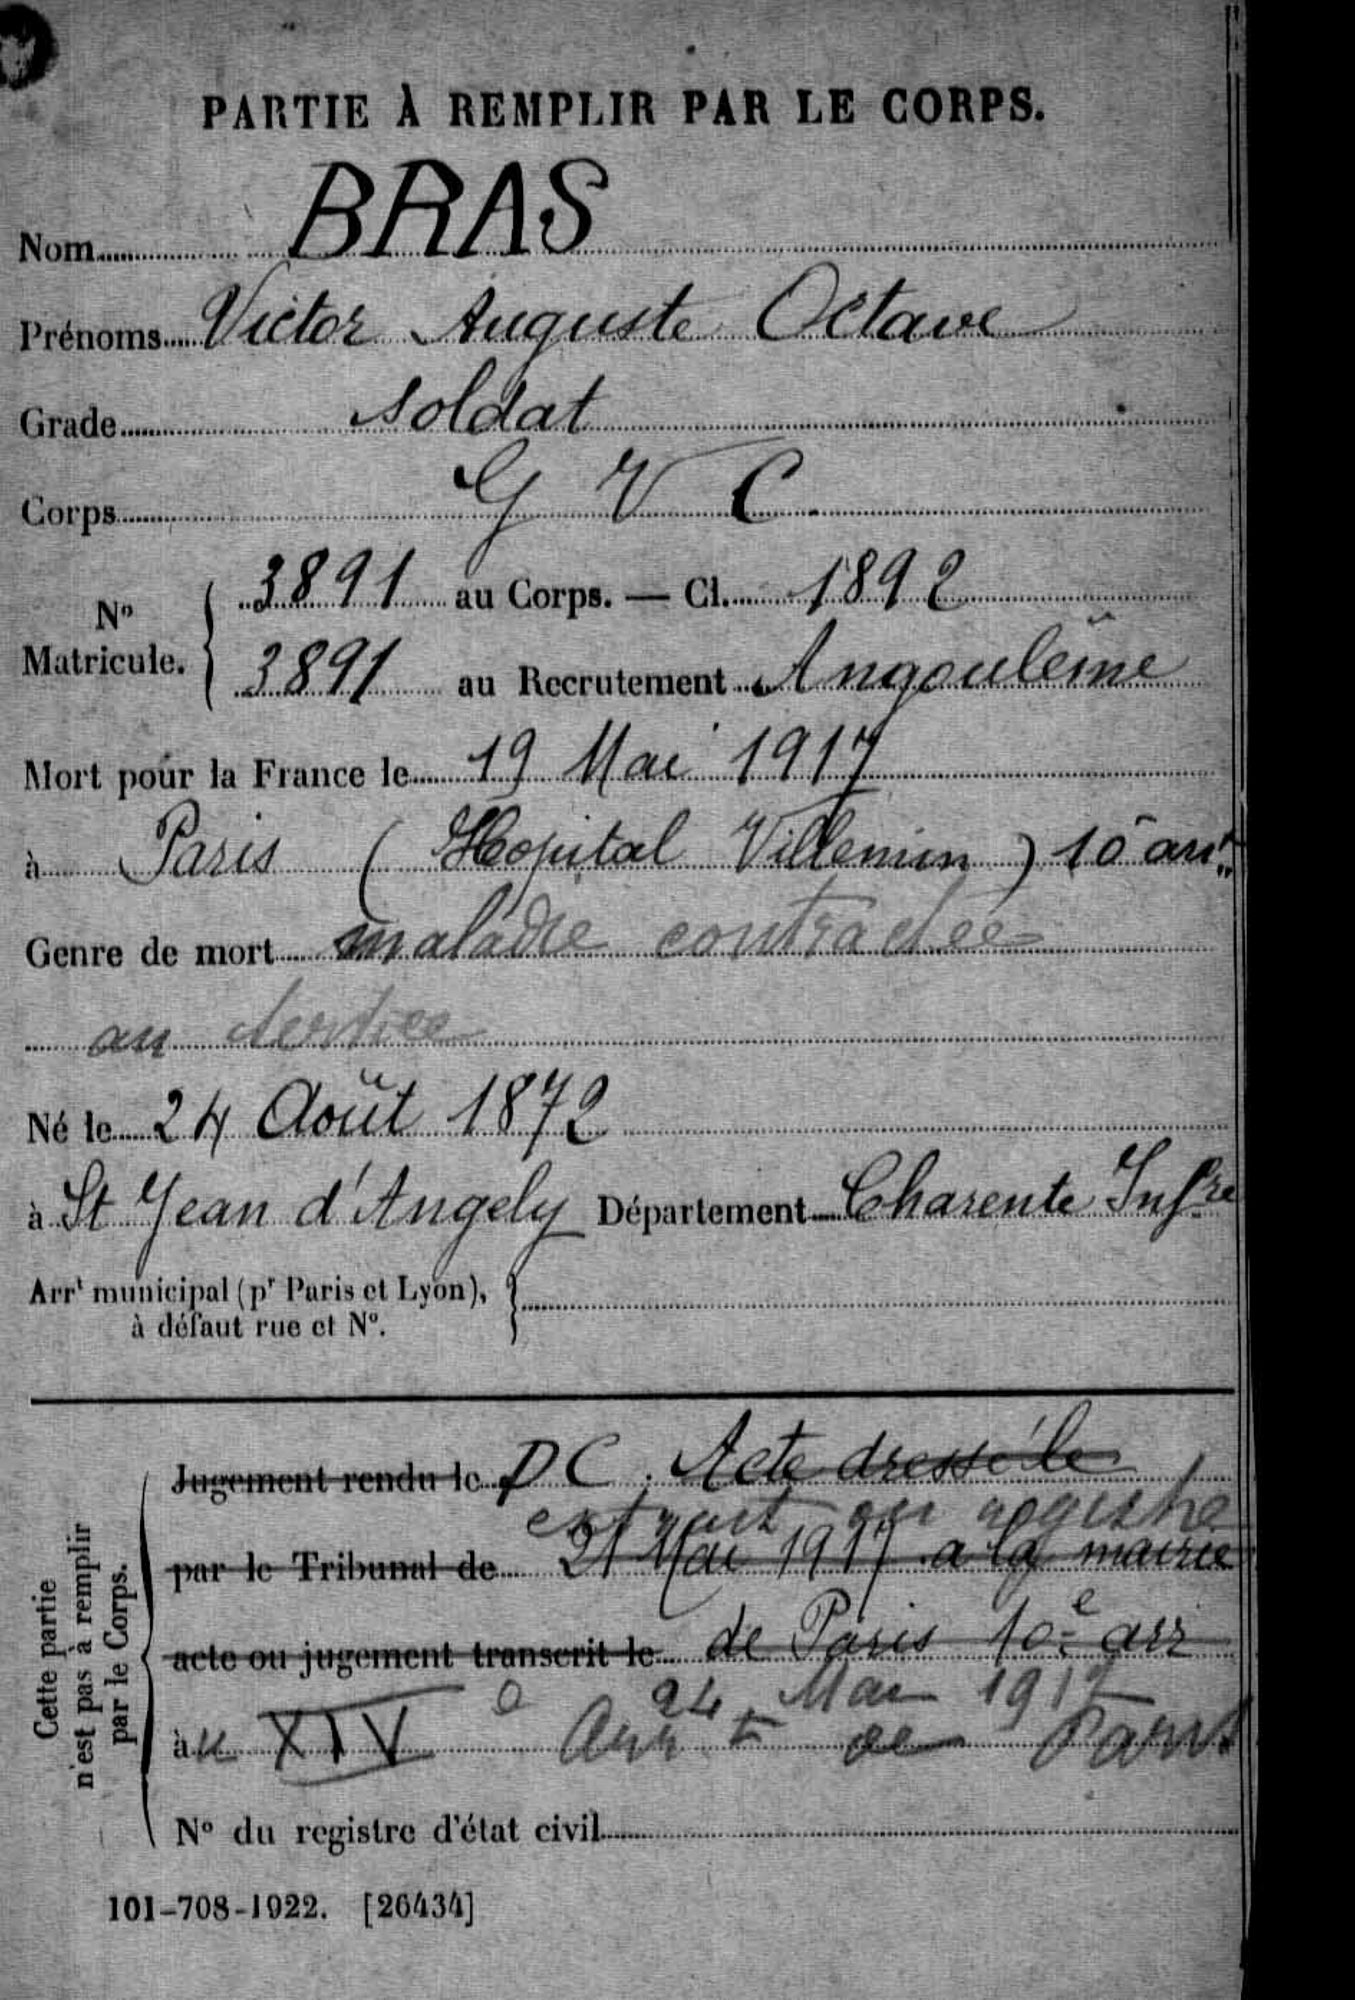 PARTIE À REMPLIR PAR LE CORPS.
Nom BRAS
Prénoms Victor Auguste Octave
Grade soldat
Corps G V C.
Nº Matricule. { 3891 au Corps. — Cl. 1892
3891 au Recrutement Angoulême
Mort pour la France le 19 Mai 1917
à Paris (Hopital Villemin) 10e arrt.
Genre de mort maladie contractée
au service
Né le 24 Août 1872
à St Jean d'Angely Département Charente Infre
Arrt municipal (pr Paris et Lyon),
à défaut rue et Nº.
Cette partie
n'est pas à remplir
par le Corps.
Jugement rendu le DC. Acte dressé le
extrait du registre
par le Tribunal de 21 Mai 1917 a la mairie
acte ou jugement transcrit le de Paris 10e arr
24 Mai 1917
à XIV Arrt de Paris
Nº du registre d'état civil
101-708-1922. [26434]